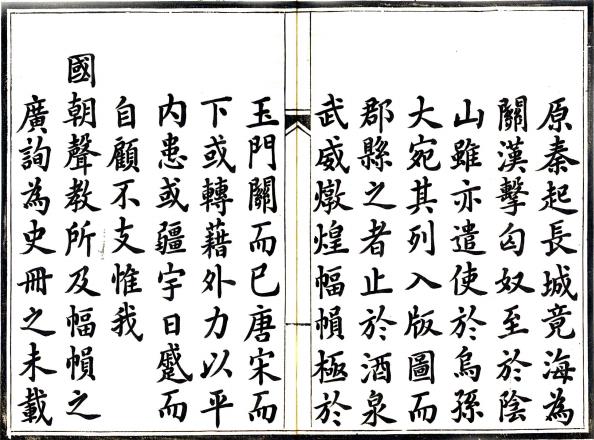 原秦起長城竟海為
關漢擊匈奴至於陰
山雖亦遣使於烏孫
大宛其列入版圖而
郡縣之者止於酒泉
武威燉煌幅幀極於
玉門關而已唐宋而
下或轉藉外力以平
内患或疆宇日蹙而
自顧不支惟我
國朝聲教所及幅幀之
廣詢為史冊之未載